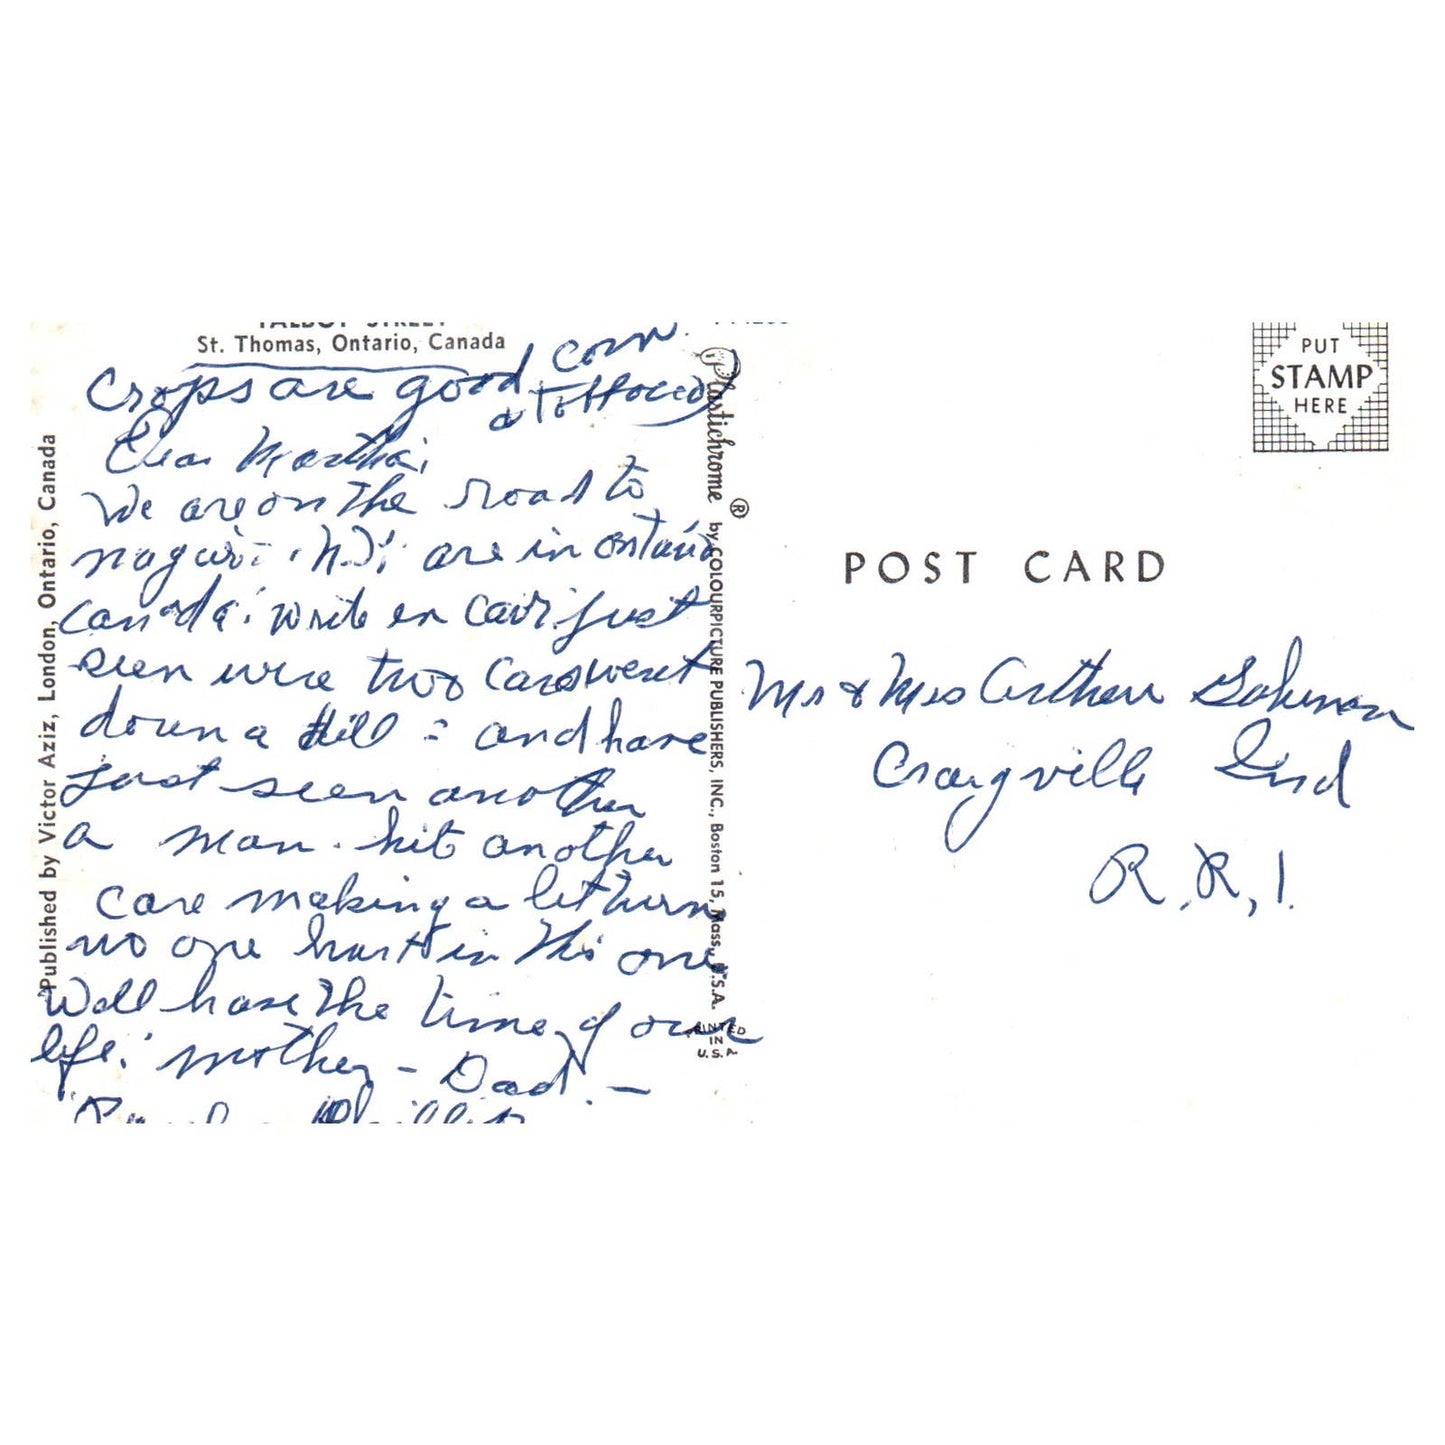 TALBOT STREET
St. Thomas, Ontario, Canada
Crops are good corn.
& Tobacco
Dear Martha;
We are on the road to
N.J; are in Ontario
Canada; write en car; just
seen were two cars went
down a Hill = and have
just seen another
a man. hit another
care making a left turn
no one hurt in this one
Well have the time of our
life. Mother - Dad. -
Phillip
Published by Victor Aziz, London, Ontario, Canada
Plastichrome ® by COLOURPICTURE PUBLISHERS, INC., Boston 15, Mass., U.S.A.
PRINTED
IN
U.S.A.
PUT
STAMP
HERE
POST CARD
Mr & Mrs Arthur
Craigville Ind
R.R,1.